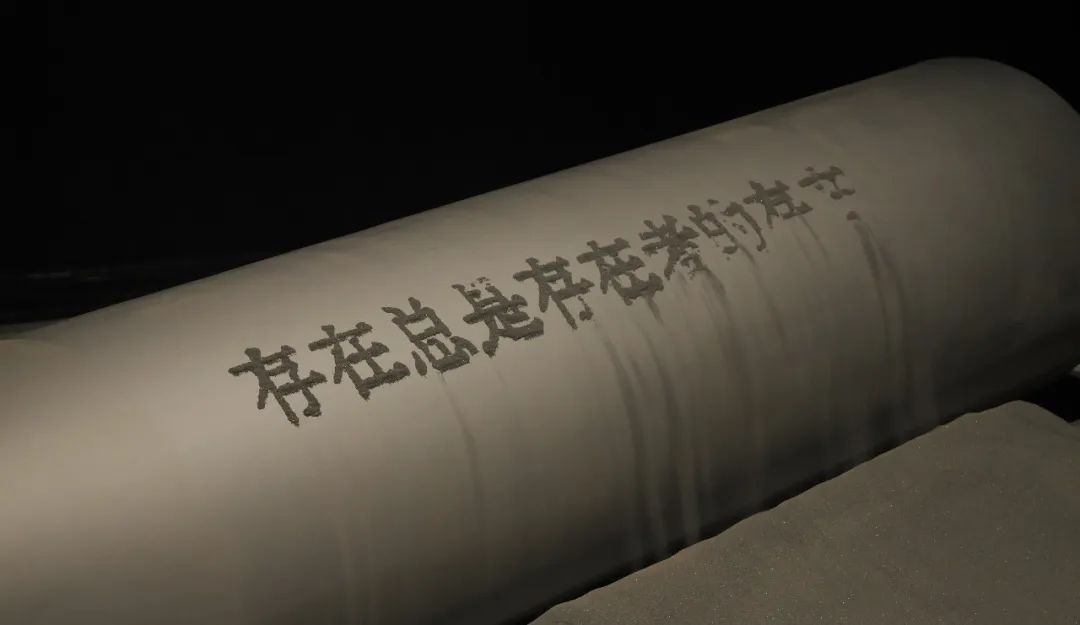 存在总是存在者的